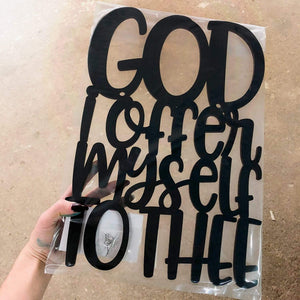 GOD
i offer
myself
TO THEE